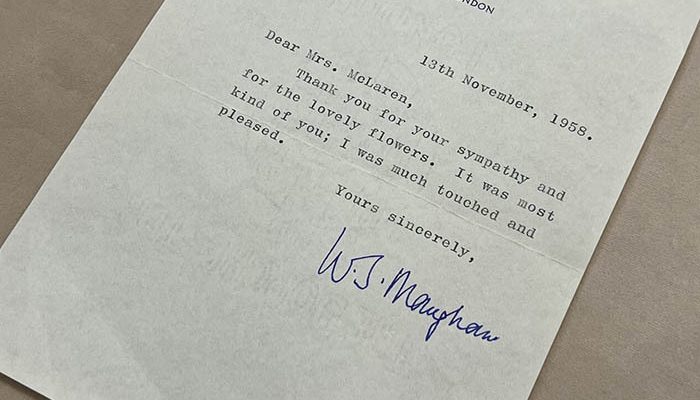 NDON
13th November, 1958.
Dear Mrs. McLaren,
Thank you for your sympathy and
for the lovely flowers. It was most
kind of you; I was much touched and
pleased.
Yours sincerely,
W.S. Maugham